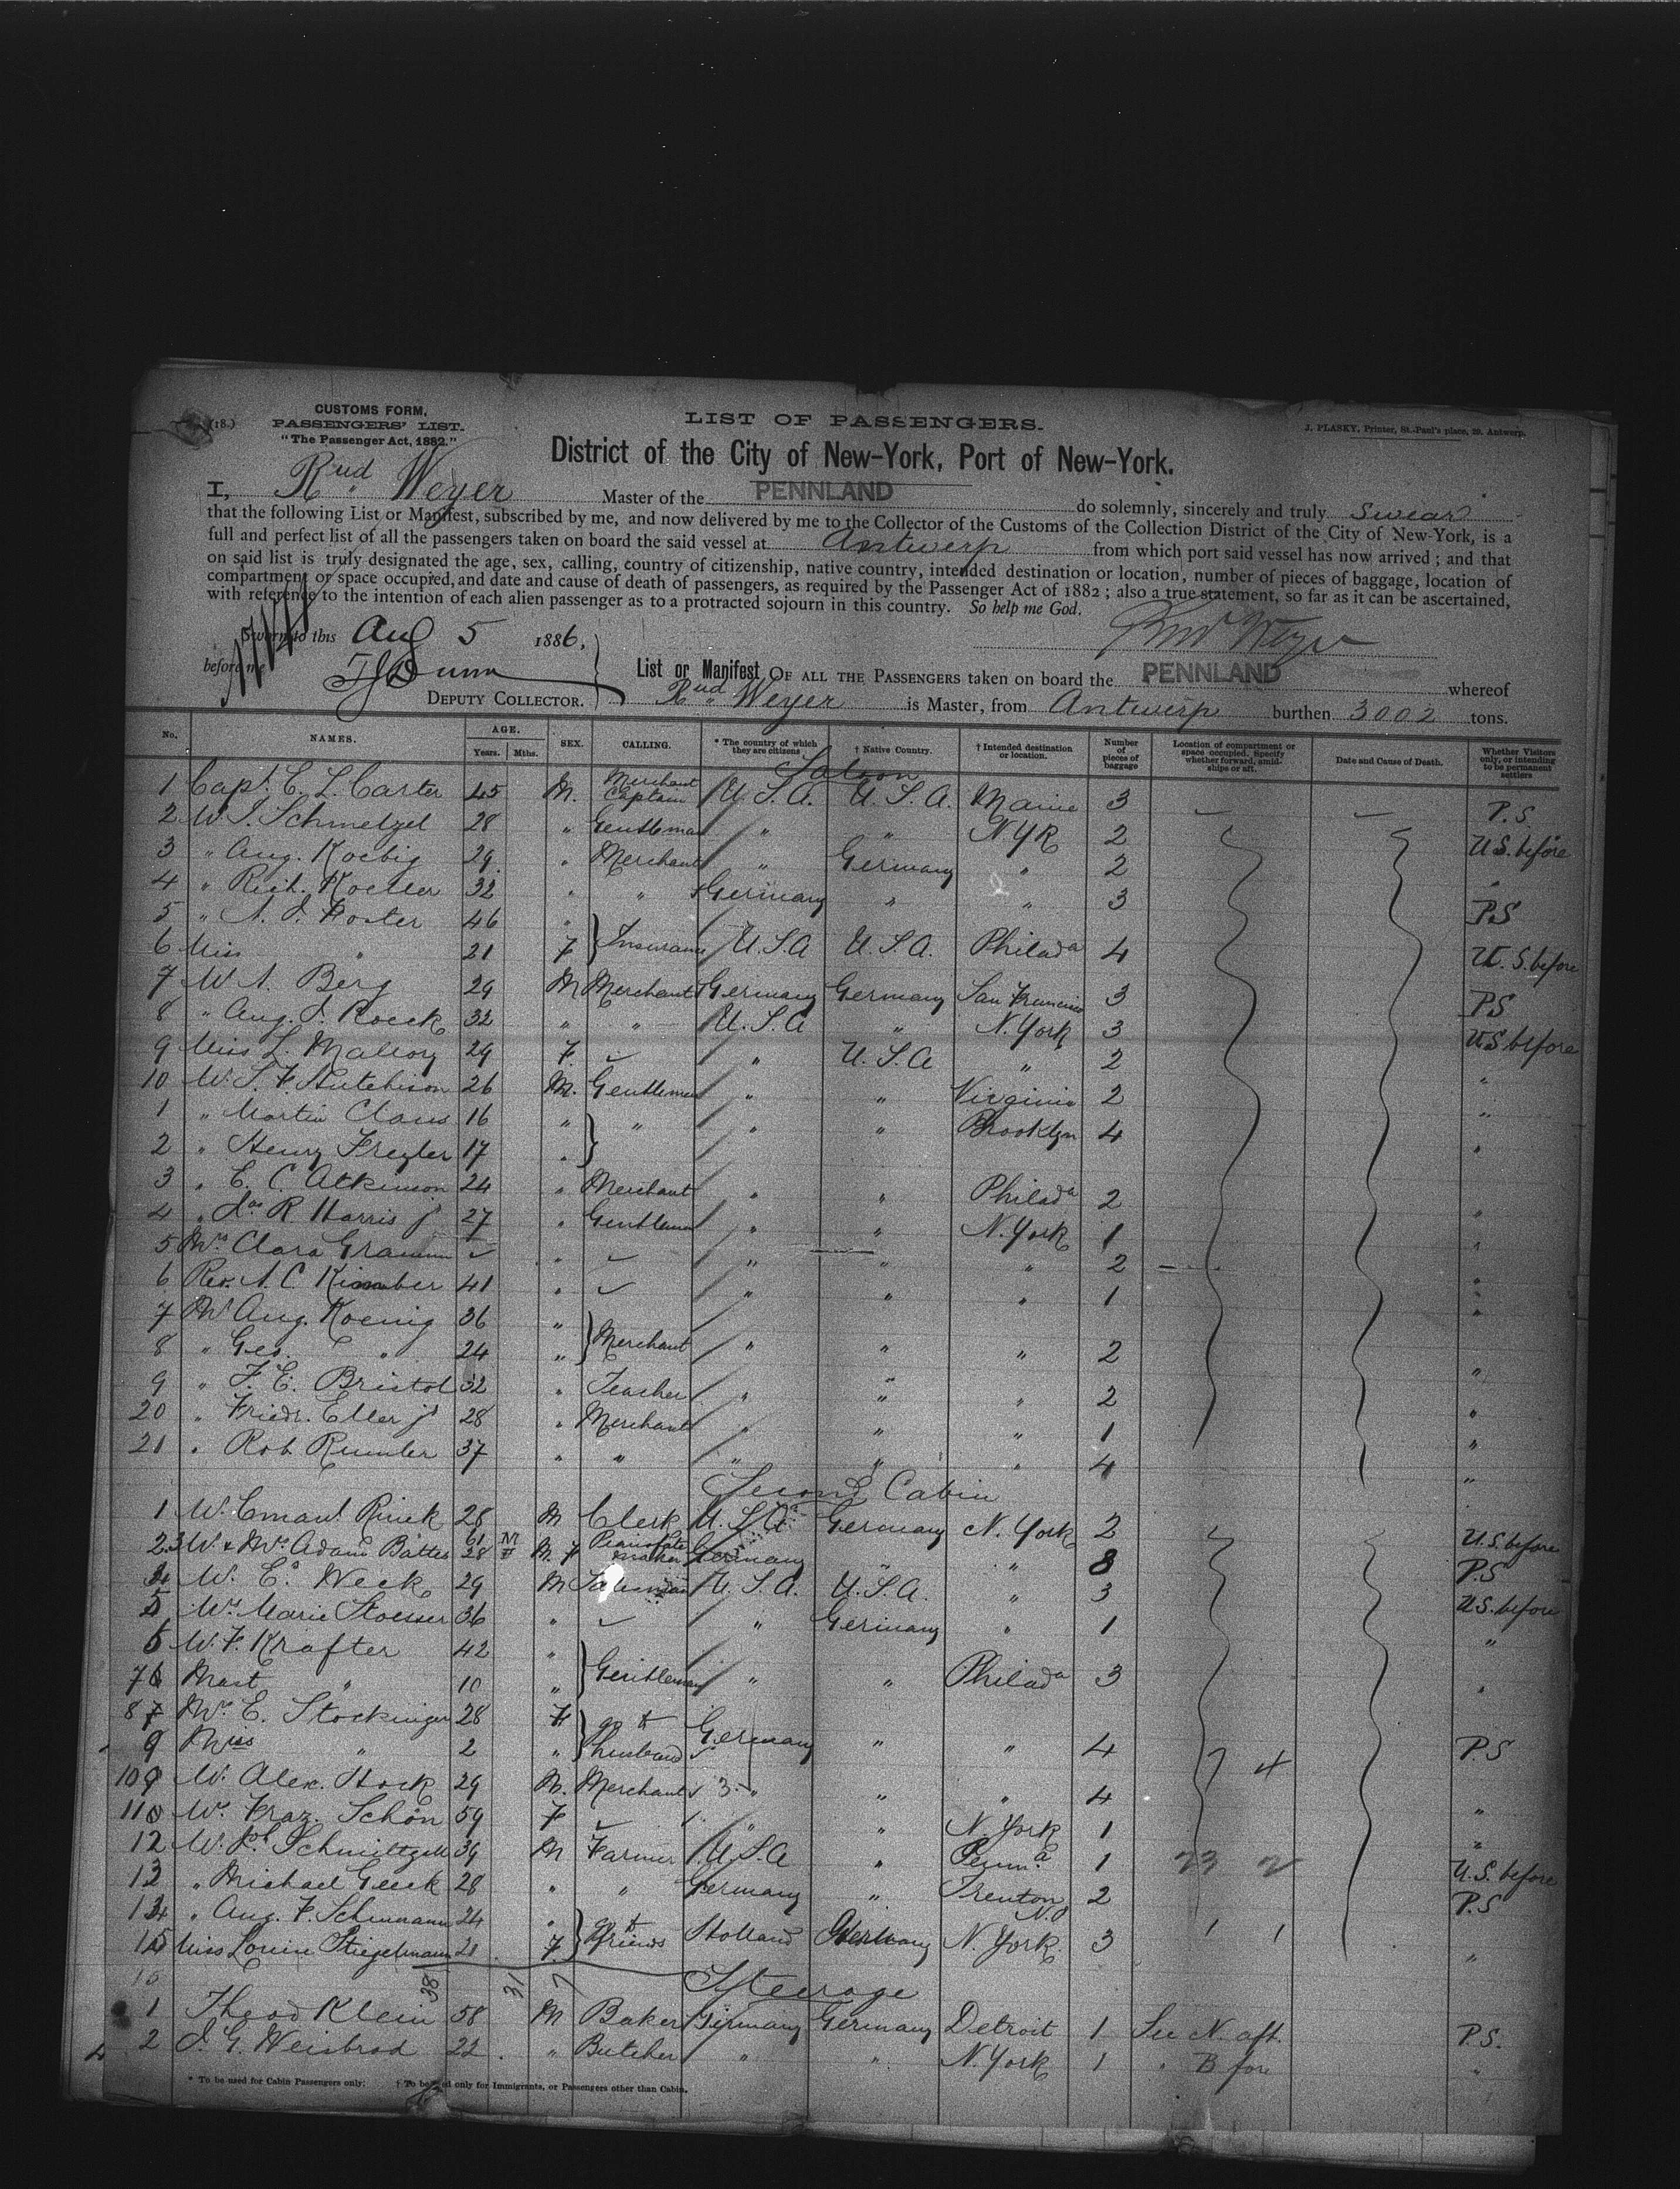 (18.)
CUSTOMS FORM,
PASSENGERS' LIST.
"The Passenger Act, 1882."
LIST OF PASSENGERS.
J. PLASKY, Printer, St.-Paul's place, 29, Antwerp.
District of the City of New-York, Port of New-York.
I, Rud. Weyer Master of the PENNLAND do solemnly, sincerely and truly swear
that the following List or Manifest, subscribed by me, and now delivered by me to the Collector of the Customs of the Collection District of the City of New-York, is a
full and perfect list of all the passengers taken on board the said vessel at Antwerp from which port said vessel has now arrived; and that
on said list is truly designated the age, sex, calling, country of citizenship, native country, intended destination or location, number of pieces of baggage, location of
compartment or space occupied, and date and cause of death of passengers, as required by the Passenger Act of 1882; also a true statement, so far as it can be ascertained,
with reference to the intention of each alien passenger as to a protracted sojourn in this country. So help me God.
Sworn to this Aug 5 1886, Rud Weyer
before me
DEPUTY COLLECTOR.
List or Manifest OF ALL THE PASSENGERS taken on board the PENNLAND whereof
Rud. Weyer is Master, from Antwerp burthen 3002 tons.
No. NAMES. AGE. Years. Mths. SEX. CALLING. * The country of which they are citizens † Native Country. † Intended destination or location. Number of pieces of baggage Location of compartment or space occupied. Specify whether forward, amidships or aft. Date and Cause of Death. Whether Visitors only, or intending to be permanent settlers
Saloon
1 Capt. E. L. Carter 45 M. Merchant Captain U.S.A. U.S.A. Maine 3 P.S
2 Schmelzel 28 " Gentleman " " NYK 2 U.S. before
3 " Aug. Koebig 29 " Merchant " Germany " 2 "
4 " Rich. 32 " " Germany " " 3 P.S
5 " Foster 46 "
6 Miss " 21 F Insurance U.S.A U.S.A. Philada 4 U.S. before
7 Berg 29 M Merchant Germany Germany San Francisco 3 PS
8 " Aug. Roeck 32 " " U.S.A " N. York 3 U.S before
9 Miss L. Mallory 29 F. " U.S.A " 2 "
10 Hutchison 26 M. Gentleman " " Virginia 2 "
1 " Martin Claus 16 " " " " Brooklyn 4 "
2 " Henry 17 "
3 " E. C. Atkinson 24 " Merchant " " Philada 2 "
4 " R Harris jr 27 " Gentleman " " N. York 1 "
5 Clara Gramm " " " " 2 "
6 Rev. A. C. Kimber 41 " " " " 1 "
7 Aug. Koenig 36 "
8 " Geo. " 24 " Merchant " " " 2 "
9 " F. E. Bristol 32 " Teacher " " " 2 "
20 " Friedr. Eller jr 28 " Merchant " " " 1 "
21 " Rob. Rumler 37 " " " " " 4 "
Second Cabin
1 Rinek 28 M Clerk U.S.A. Germany N. York 2 U.S. before
2.3 Adam 61 28 M F M. F Pianoforte maker Germany " " 8 P.S
4 Weck 29 M U.S.A. U.S.A. " 3 U.S. before
5 Marie Stoesser 36 " " Germany " 1 "
6 Krafter 42 "
7 Mast " 10 " Gentleman " " Philada 3 "
8 E. Stockinger 28 F
9 Miss " 2 " go to husband Germany " " 4 P.S
10 Alex. Hock 29 M. Merchant " " " 4 "
11 Schön 59 F " " N. York 1 "
12 39 M Farmer U.S.A " Penna 1 U.S. before
13 " Michael Geeck 28 " " Germany " Trenton 2 P.S
14 " Aug. F. Schumann 24 "
15 Miss Louise Stiegelmann 21 F. go to friends Holland Germany N. York. 3 "
38 31 7
Steerage
1 Theod Klein 58 M Baker Germany Germany Detroit 1 aft. P.S.
2 Weisbrod 22 " Butcher " " N. York 1 " B for "
* To be used for Cabin Passengers only; † To be used only for Immigrants, or Passengers other than Cabin.